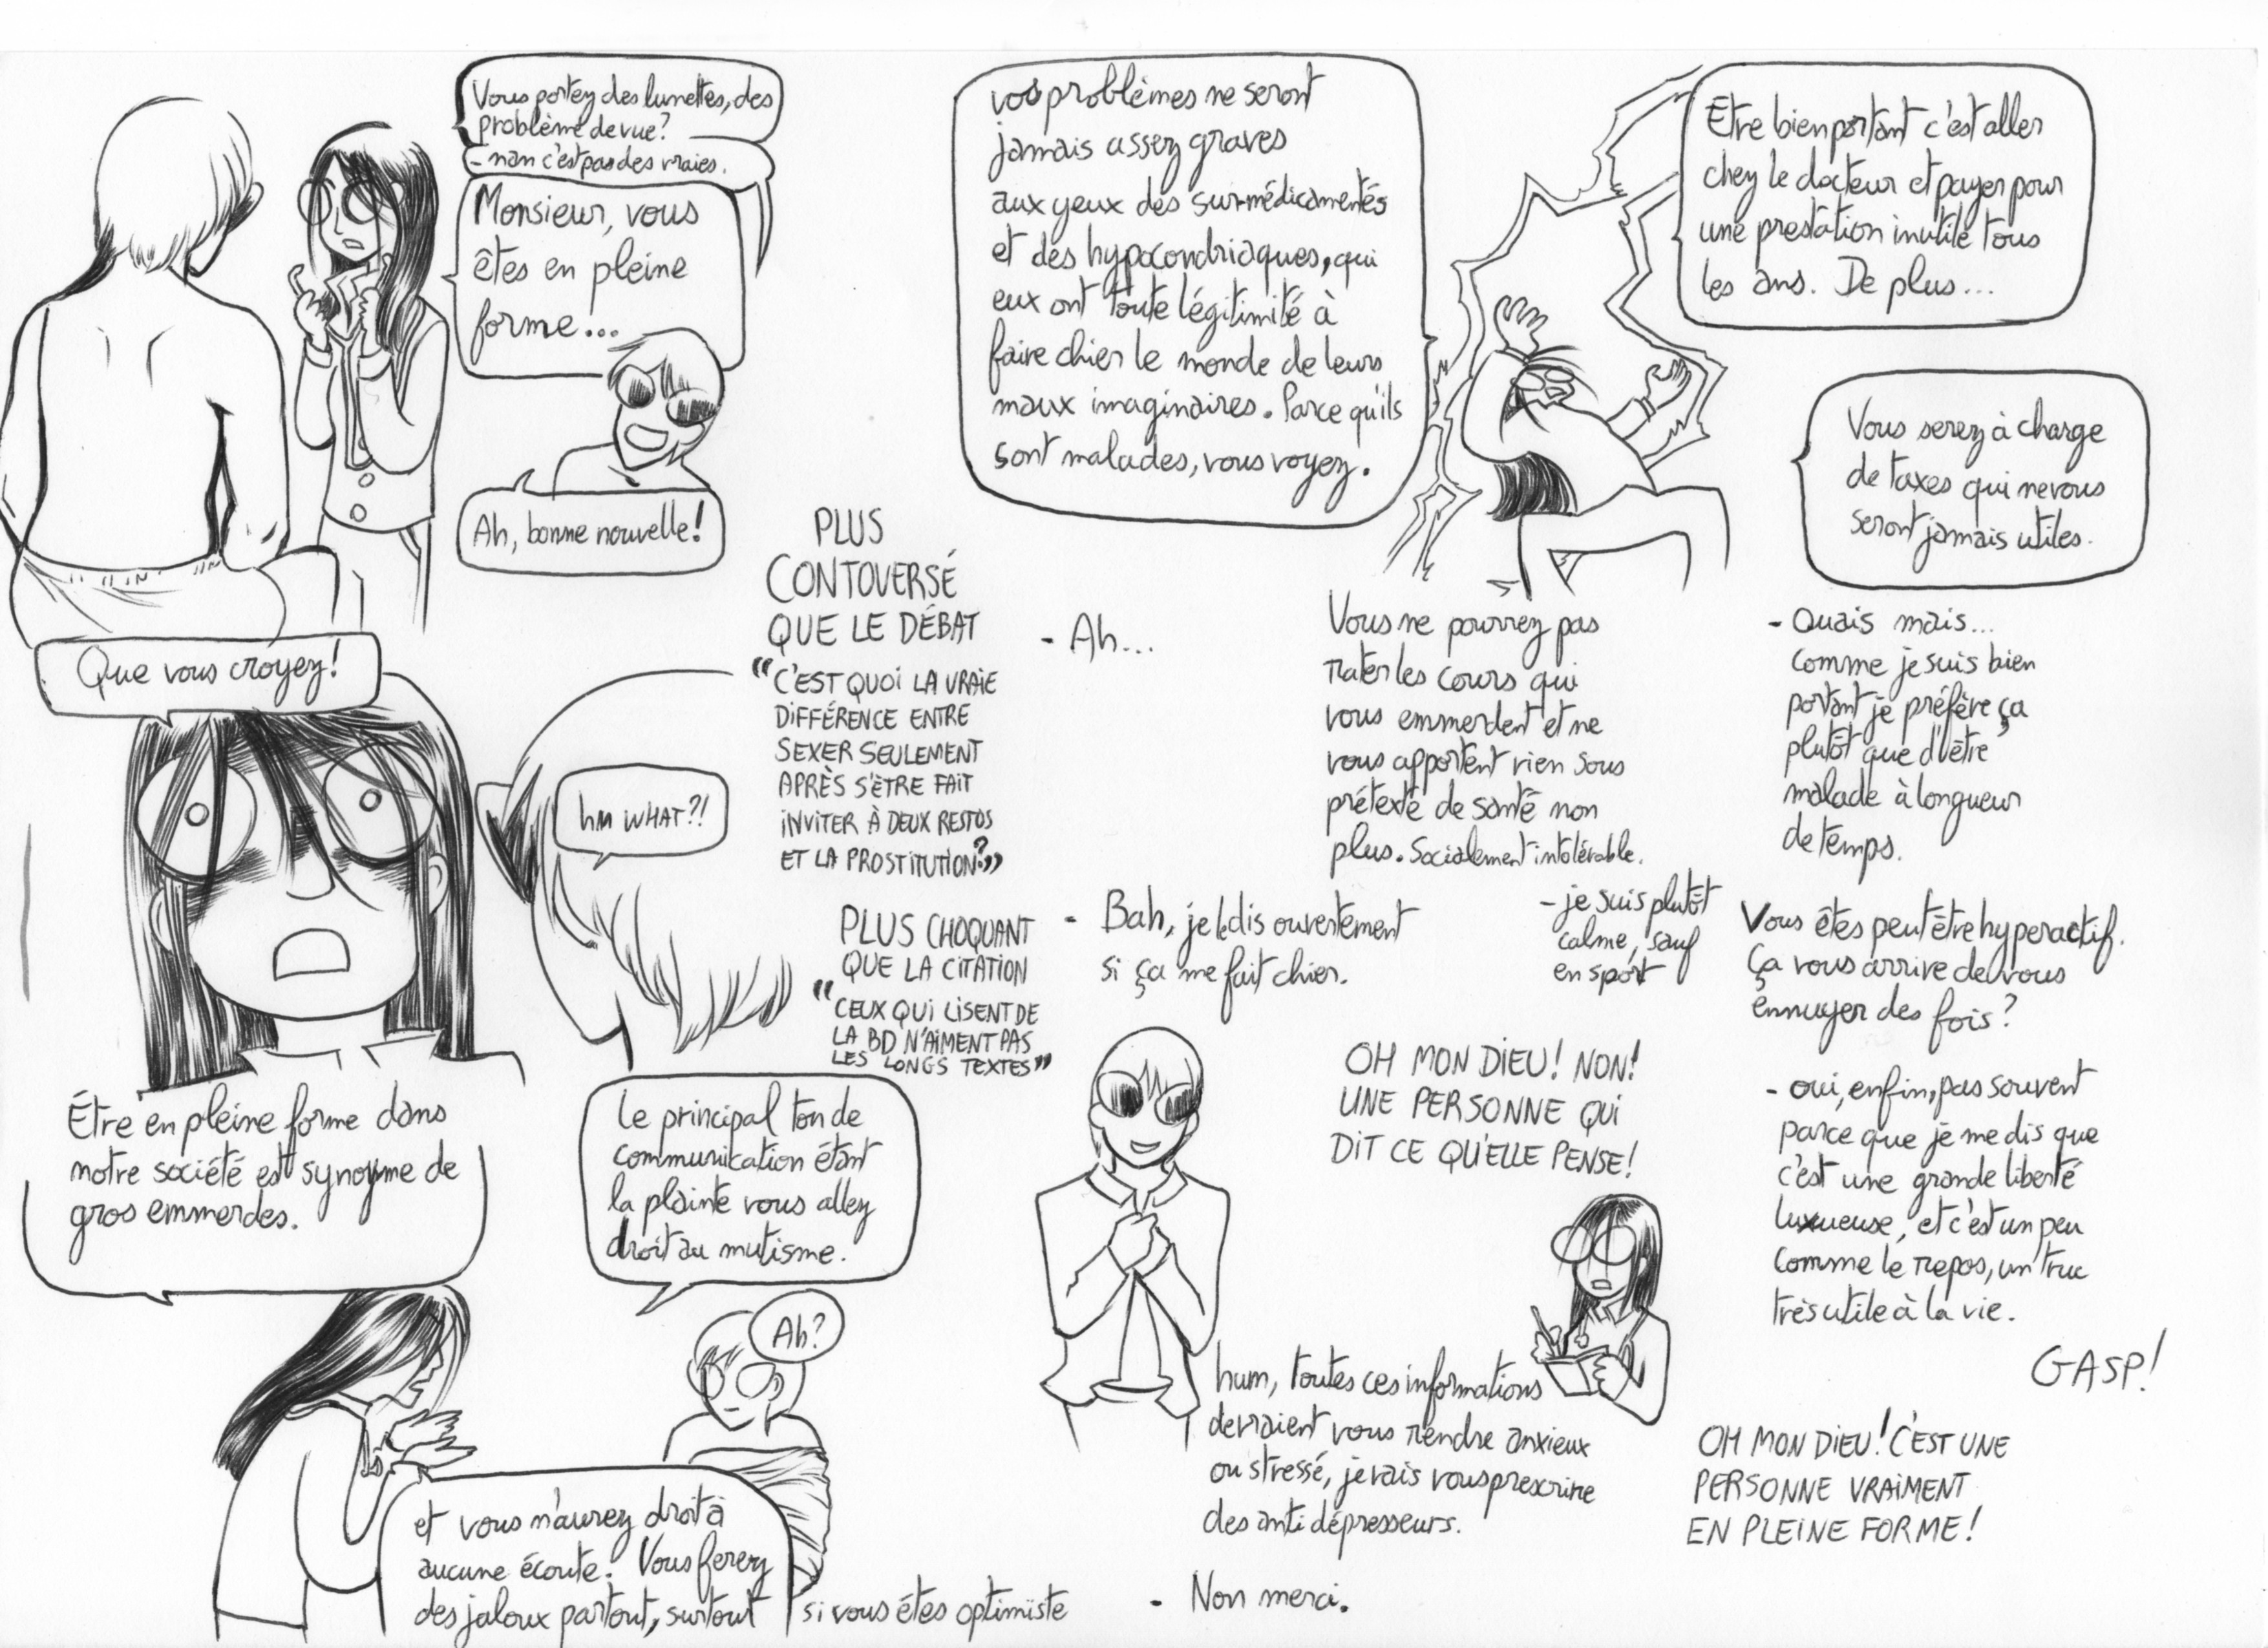 Vous portez des lunettes, des
problème de vue?
- nan c'est pas des vraies.
Monsieur, vous
êtes en pleine
forme...
Ah, bonne nouvelle!
Que vous croyez!
hm WHAT?!
Être en pleine forme dans
notre société est synonyme de
gros emmerdes.
Le principal ton de
communication étant
la plainte vous allez
droit au mutisme.
Ah?
et vous n'aurez droit à
aucune écoute. Vous ferez
des jaloux partout, surtout si vous êtes optimiste
PLUS
CONTOVERSÉ
QUE LE DÉBAT
"C'EST QUOI LA VRAIE
DIFFÉRENCE ENTRE
SEXER SEULEMENT
APRÈS S'ÊTRE FAIT
INVITER À DEUX RESTOS
ET LA PROSTITUTION?"
PLUS CHOQUANT
QUE LA CITATION
"CEUX QUI LISENT DE
LA BD N'AIMENT PAS
LES LONGS TEXTES"
vos problèmes ne seront
jamais assez graves
aux yeux des sur-médicamentés
et des hypocondriaques, qui
eux ont toute légitimité à
faire chier le monde de leurs
maux imaginaires. Parce qu'ils
sont malades, vous voyez.
Être bien portant c'est aller
chez le docteur et payer pour
une prestation inutile tous
les ans. De plus...
Vous serez à charge
de taxes qui ne vous
seront jamais utiles.
- Ah...
Vous ne pourrez pas
rater les cours qui
vous emmerdent et ne
vous apportent rien sous
prétexte de santé non
plus. Socialement intolérable.
- Ouais mais...
comme je suis bien
portant je préfère ça
plutôt que d'être
malade à longueur
de temps.
Vous êtes peut être hyperactif.
Ça vous arrive de vous
ennuyer des fois?
- je suis plutôt
calme, sauf
en sport
- Bah, je le dis ouvertement
si ça me fait chier.
- oui, enfin, pas souvent
parce que je me dis que
c'est une grande liberté
luxueuse, et c'est un peu
comme le repos, un truc
très utile à la vie.
OH MON DIEU! NON!
UNE PERSONNE QUI
DIT CE QU'ELLE PENSE!
GASP!
OH MON DIEU! C'EST UNE
PERSONNE VRAIMENT
EN PLEINE FORME!
hum, toutes ces informations
devraient vous rendre anxieux
ou stressé, je vais vous prescrire
des anti dépresseurs.
- Non merci.